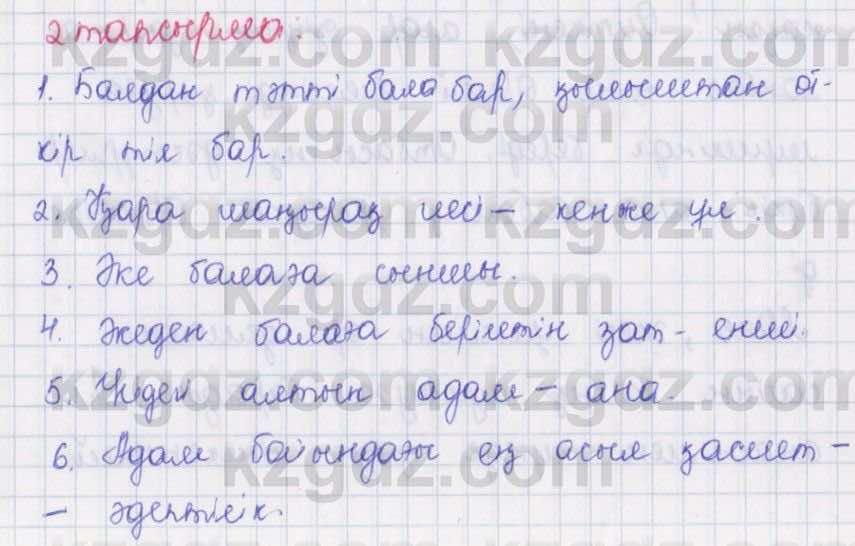 2 тапсырма:
1. Балдан тәтті бала бар, қылыштан өт-
кір тіл бар.
2. Қара шаңырақ иесі – кенже ұл.
3. Әке балаға сыншы.
4. Әкеден балаға берілетін зат – енші.
5. Үйдегі алтын адам – ана.
6. Адам бойындағы ең асыл қасиет –
– әдептілік.
kzgdz.com